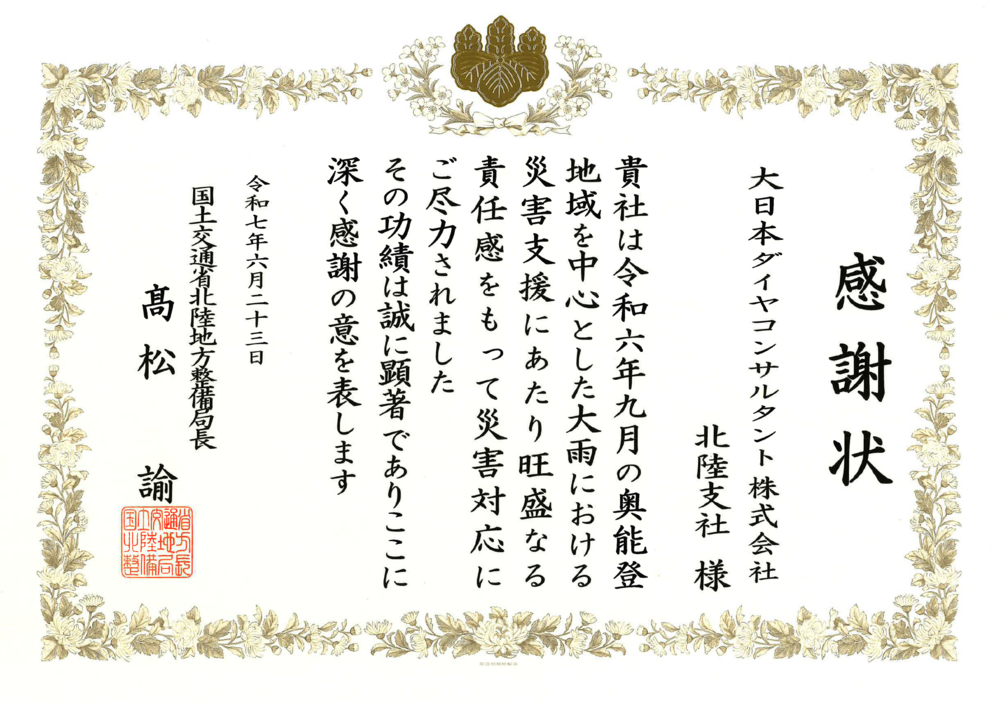 感謝状
大日本ダイヤコンサルタント株式会社
北陸支社 様
貴社は令和六年九月の奥能登
地域を中心とした大雨における
災害支援にあたり旺盛なる
責任感をもって災害対応に
ご尽力されました
その功績は誠に顕著でありここに
深く感謝の意を表します
令和七年六月二十三日
国土交通省北陸地方整備局長
髙松 諭